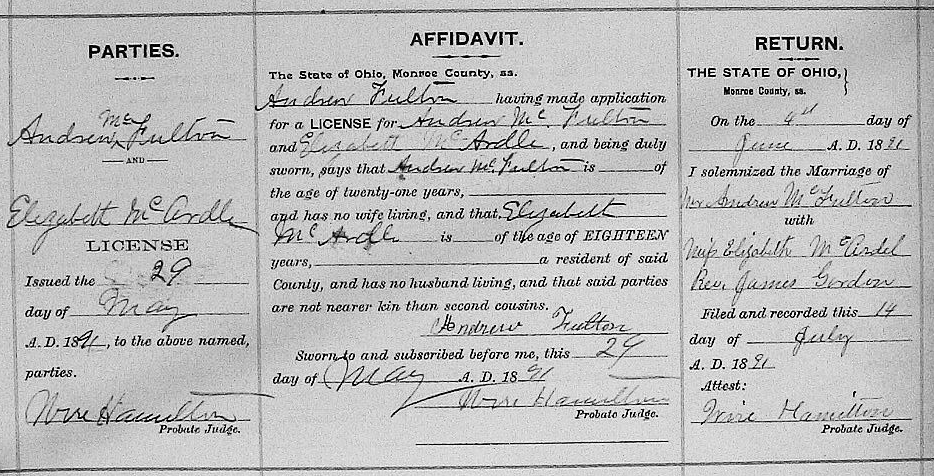 PARTIES.
Andrew Mc Fulton
AND
Elizabeth McArdle
LICENSE
Issued the 29
day of May
A. D. 1891, to the above named,
parties.
Hamilton
Probate Judge.
AFFIDAVIT.
The State of Ohio, Monroe County, ss.
Andrew Fulton having made application
for a LICENSE for Andrew Mc. Fulton
and Elizabeth McArdle, and being duly
sworn, says that Andrew Mc Fulton is of
the age of twenty-one years,
and has no wife living, and that Elizabeth
McArdle is of the age of EIGHTEEN
years, a resident of said
County, and has no husband living, and that said parties
are not nearer kin than second cousins.
Andrew Fulton
Sworn to and subscribed before me, this 29
day of May A. D. 1891
Hamilton
Probate Judge.
RETURN.
THE STATE OF OHIO, }
Monroe County, ss.
On the 4th day of
June A. D. 1891
I solemnized the Marriage of
Mr Andrew Mc Fulton
with
Miss Elizabeth McArdel
Rev. James Gordon
Filed and recorded this 14
day of July
A. D. 1891
Attest:
Hamilton
Probate Judge.